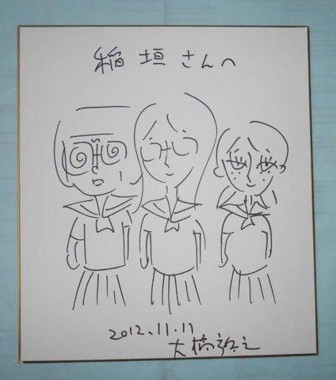 稲垣さんへ
2012.11.11
大橋裕之